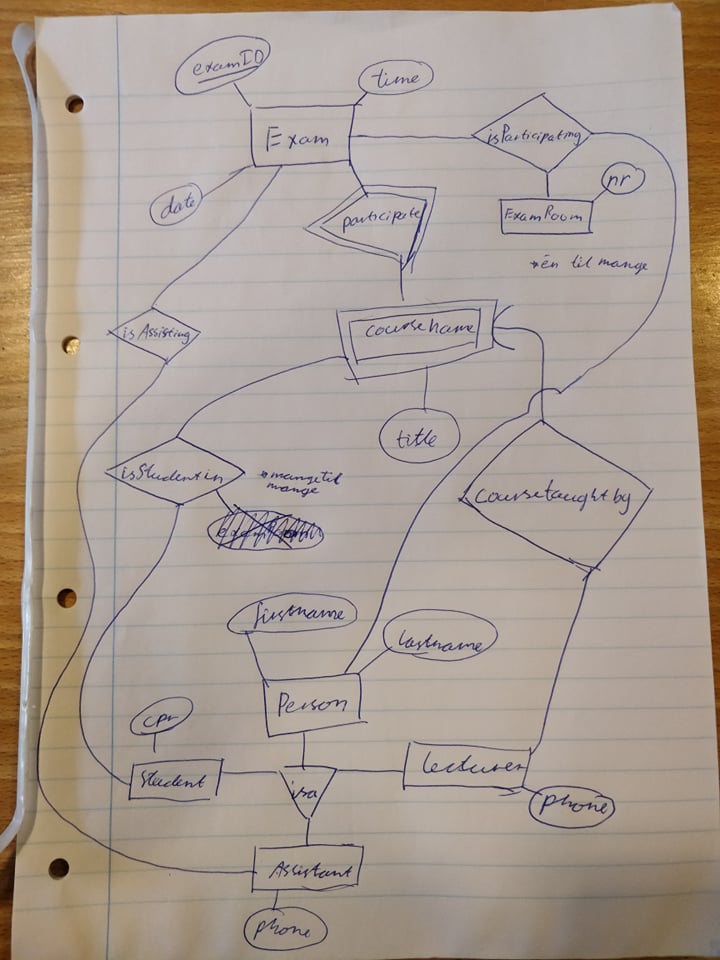 examID
time
Exam
isParticipating
nr
date
participate
ExamRoom
én til mange
isAssisting
coursename
title
isStudentin
mangetil
mange
coursetaught by
firstname
lastname
Person
cpr
Student
isa
lecturer
phone
Assistant
phone